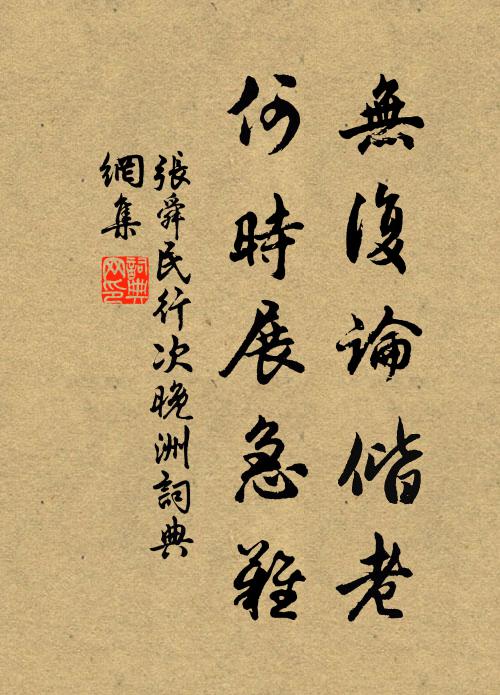 無復論偕老
何時展急難
張舜民行次晚洲詞典
網集
詞典
网印